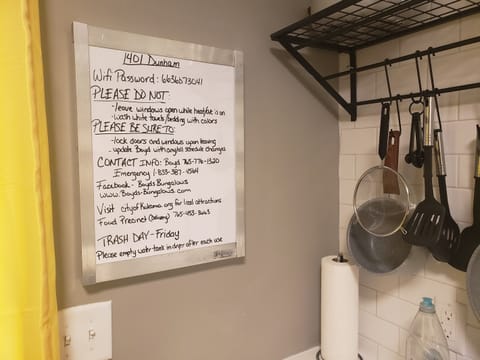 1401 Dunham
Wifi Password: 6636573041
PLEASE DO NOT:
-leave windows open while heat/ac is on
-wash white towels/bedding with colors
PLEASE BE SURE TO:
-lock doors and windows upon leaving
-update Boyd with any schedule changes
CONTACT INFO: Boyd 765-776-1320
Emergency 1-833-387-4564
Facebook - Boyds Bungalows
www.Boyds-Bungalows.com
Visit cityofKokomo.org for local attractions
Food Precinct (Delivery) 765-
TRASH DAY - Friday
Please empty water tank in dryer after each use